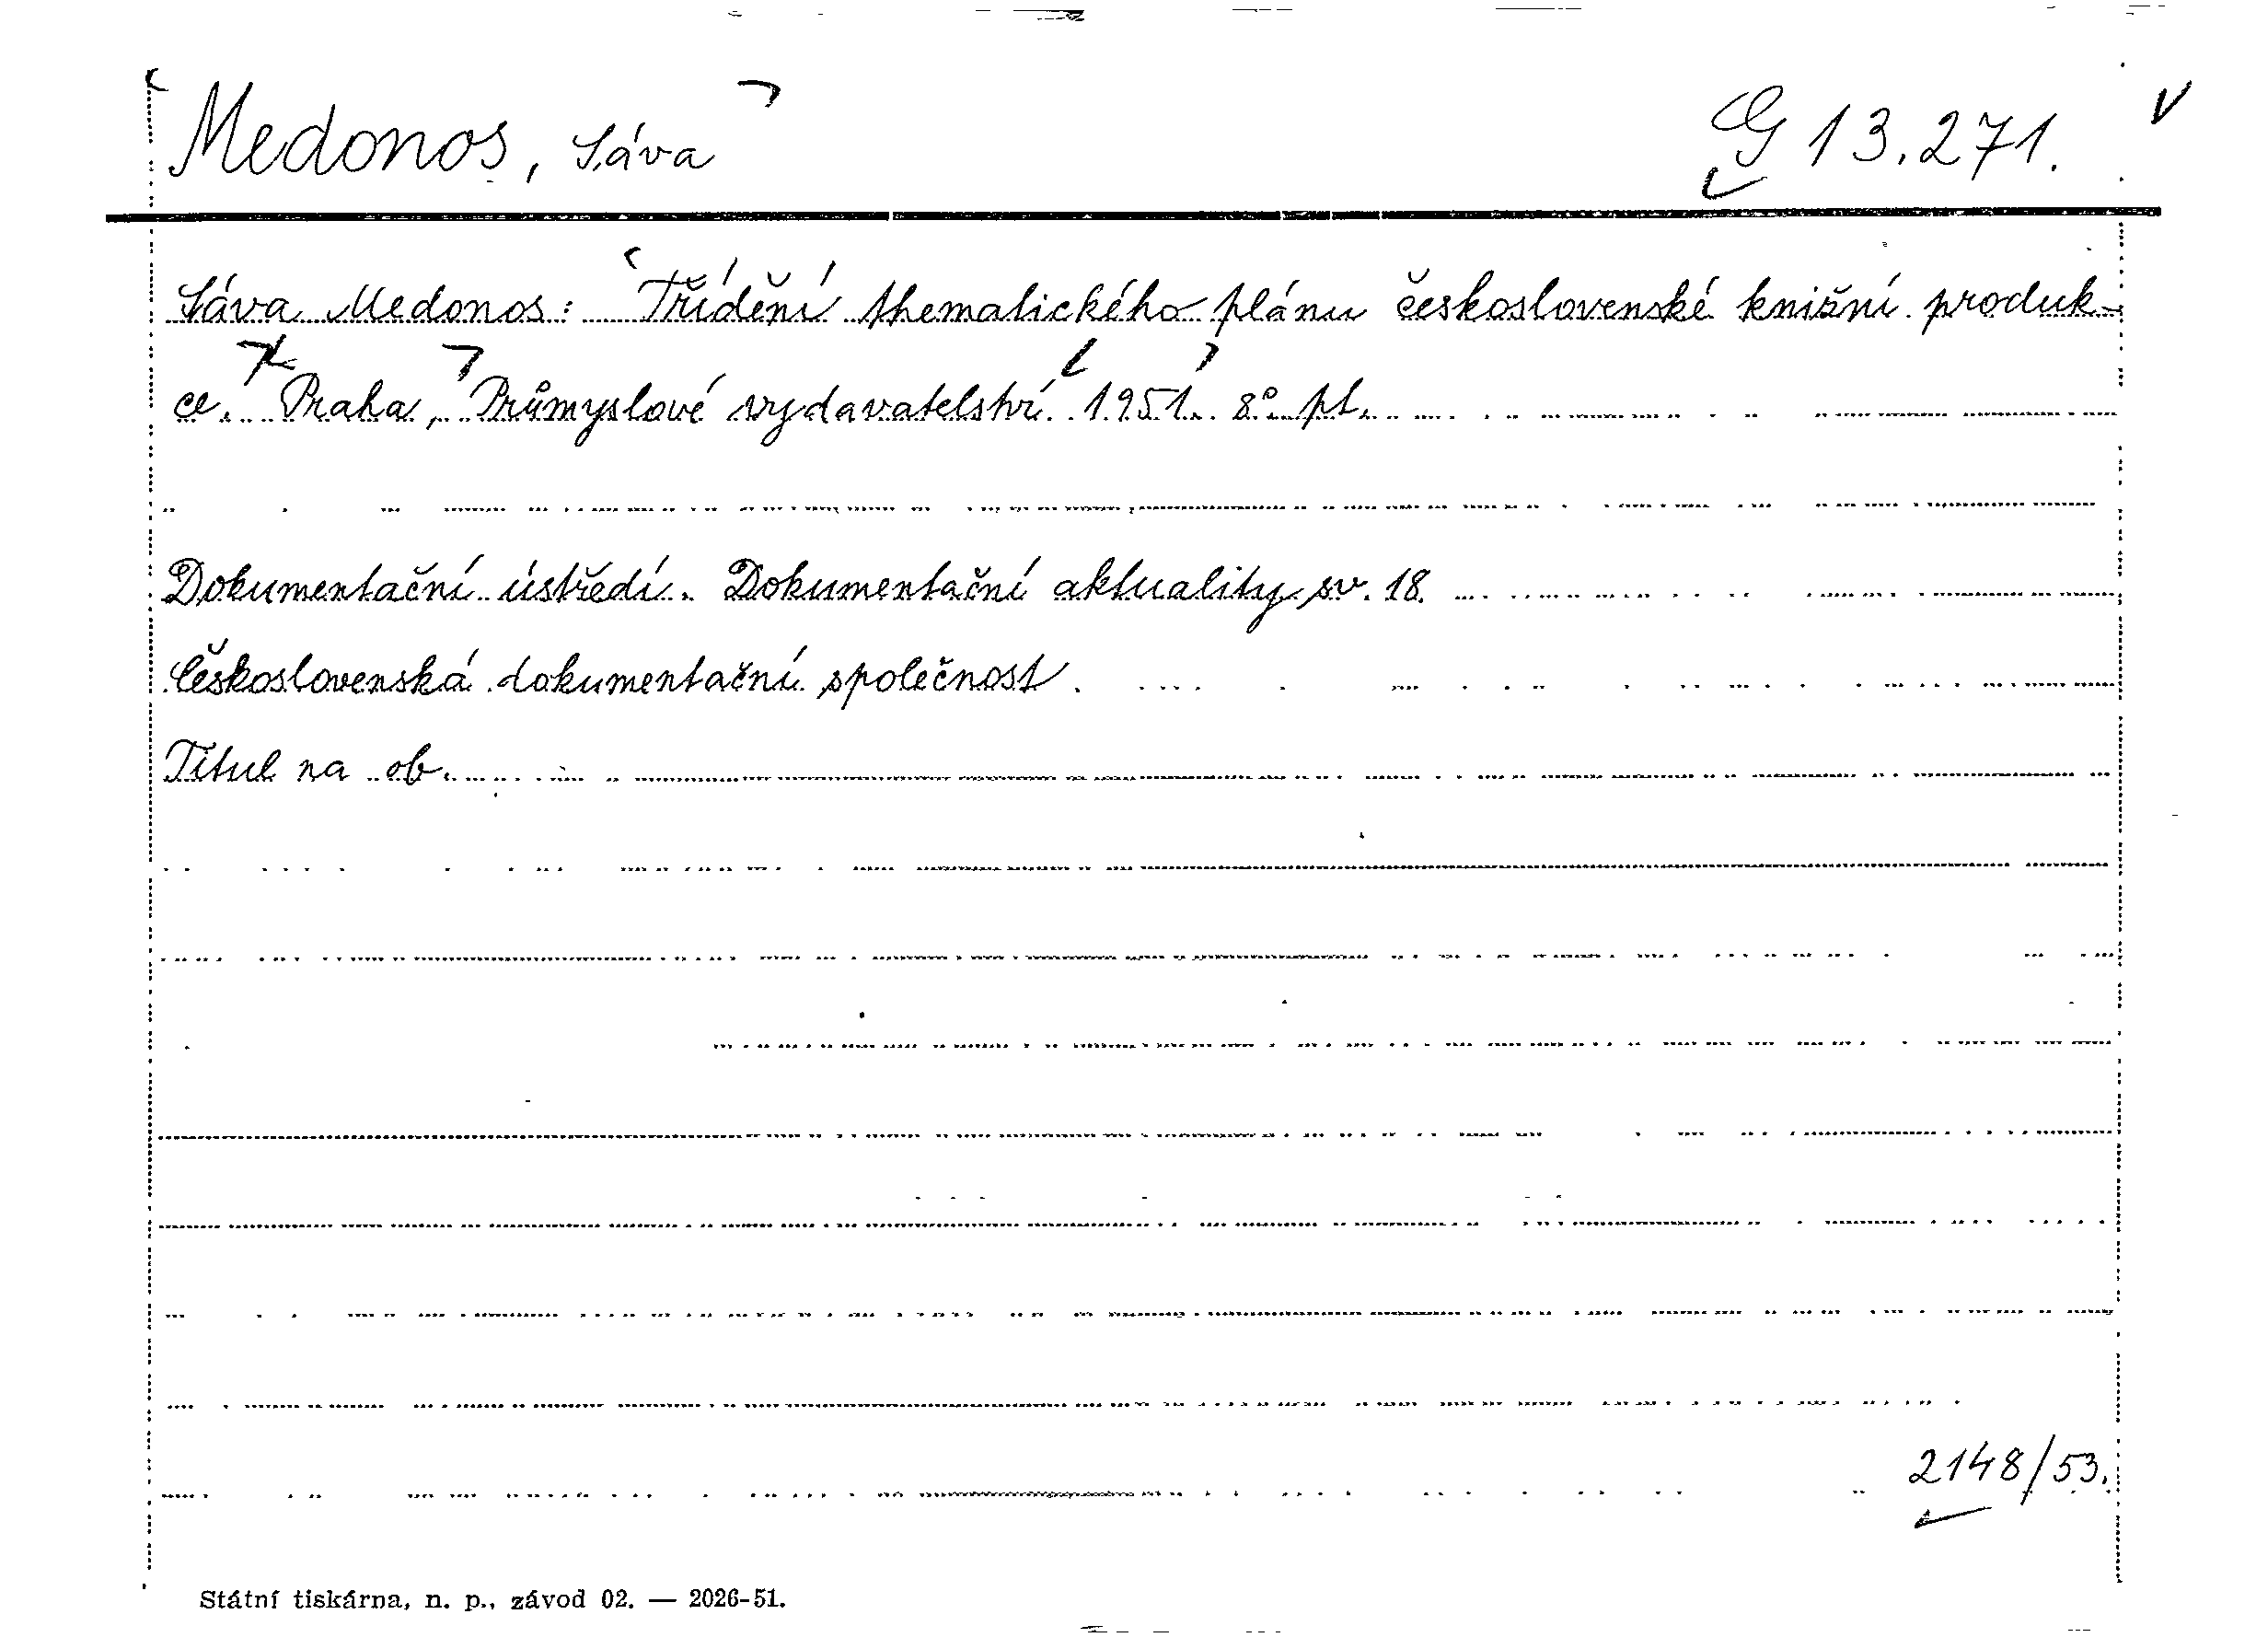 Medonos, Sáva G 13.271.
Sáva Medonos: Třídění thematického plánu československé knižní produk-
ce. Praha, Průmyslové vydavatelství 1951. 8° pt.
Dokumentační ústředí. Dokumentační aktuality sv. 18.
Československá dokumentační společnost.
Titul na ob.
2148/53.
Státní tiskárna, n. p., závod 02. — 2026-51.